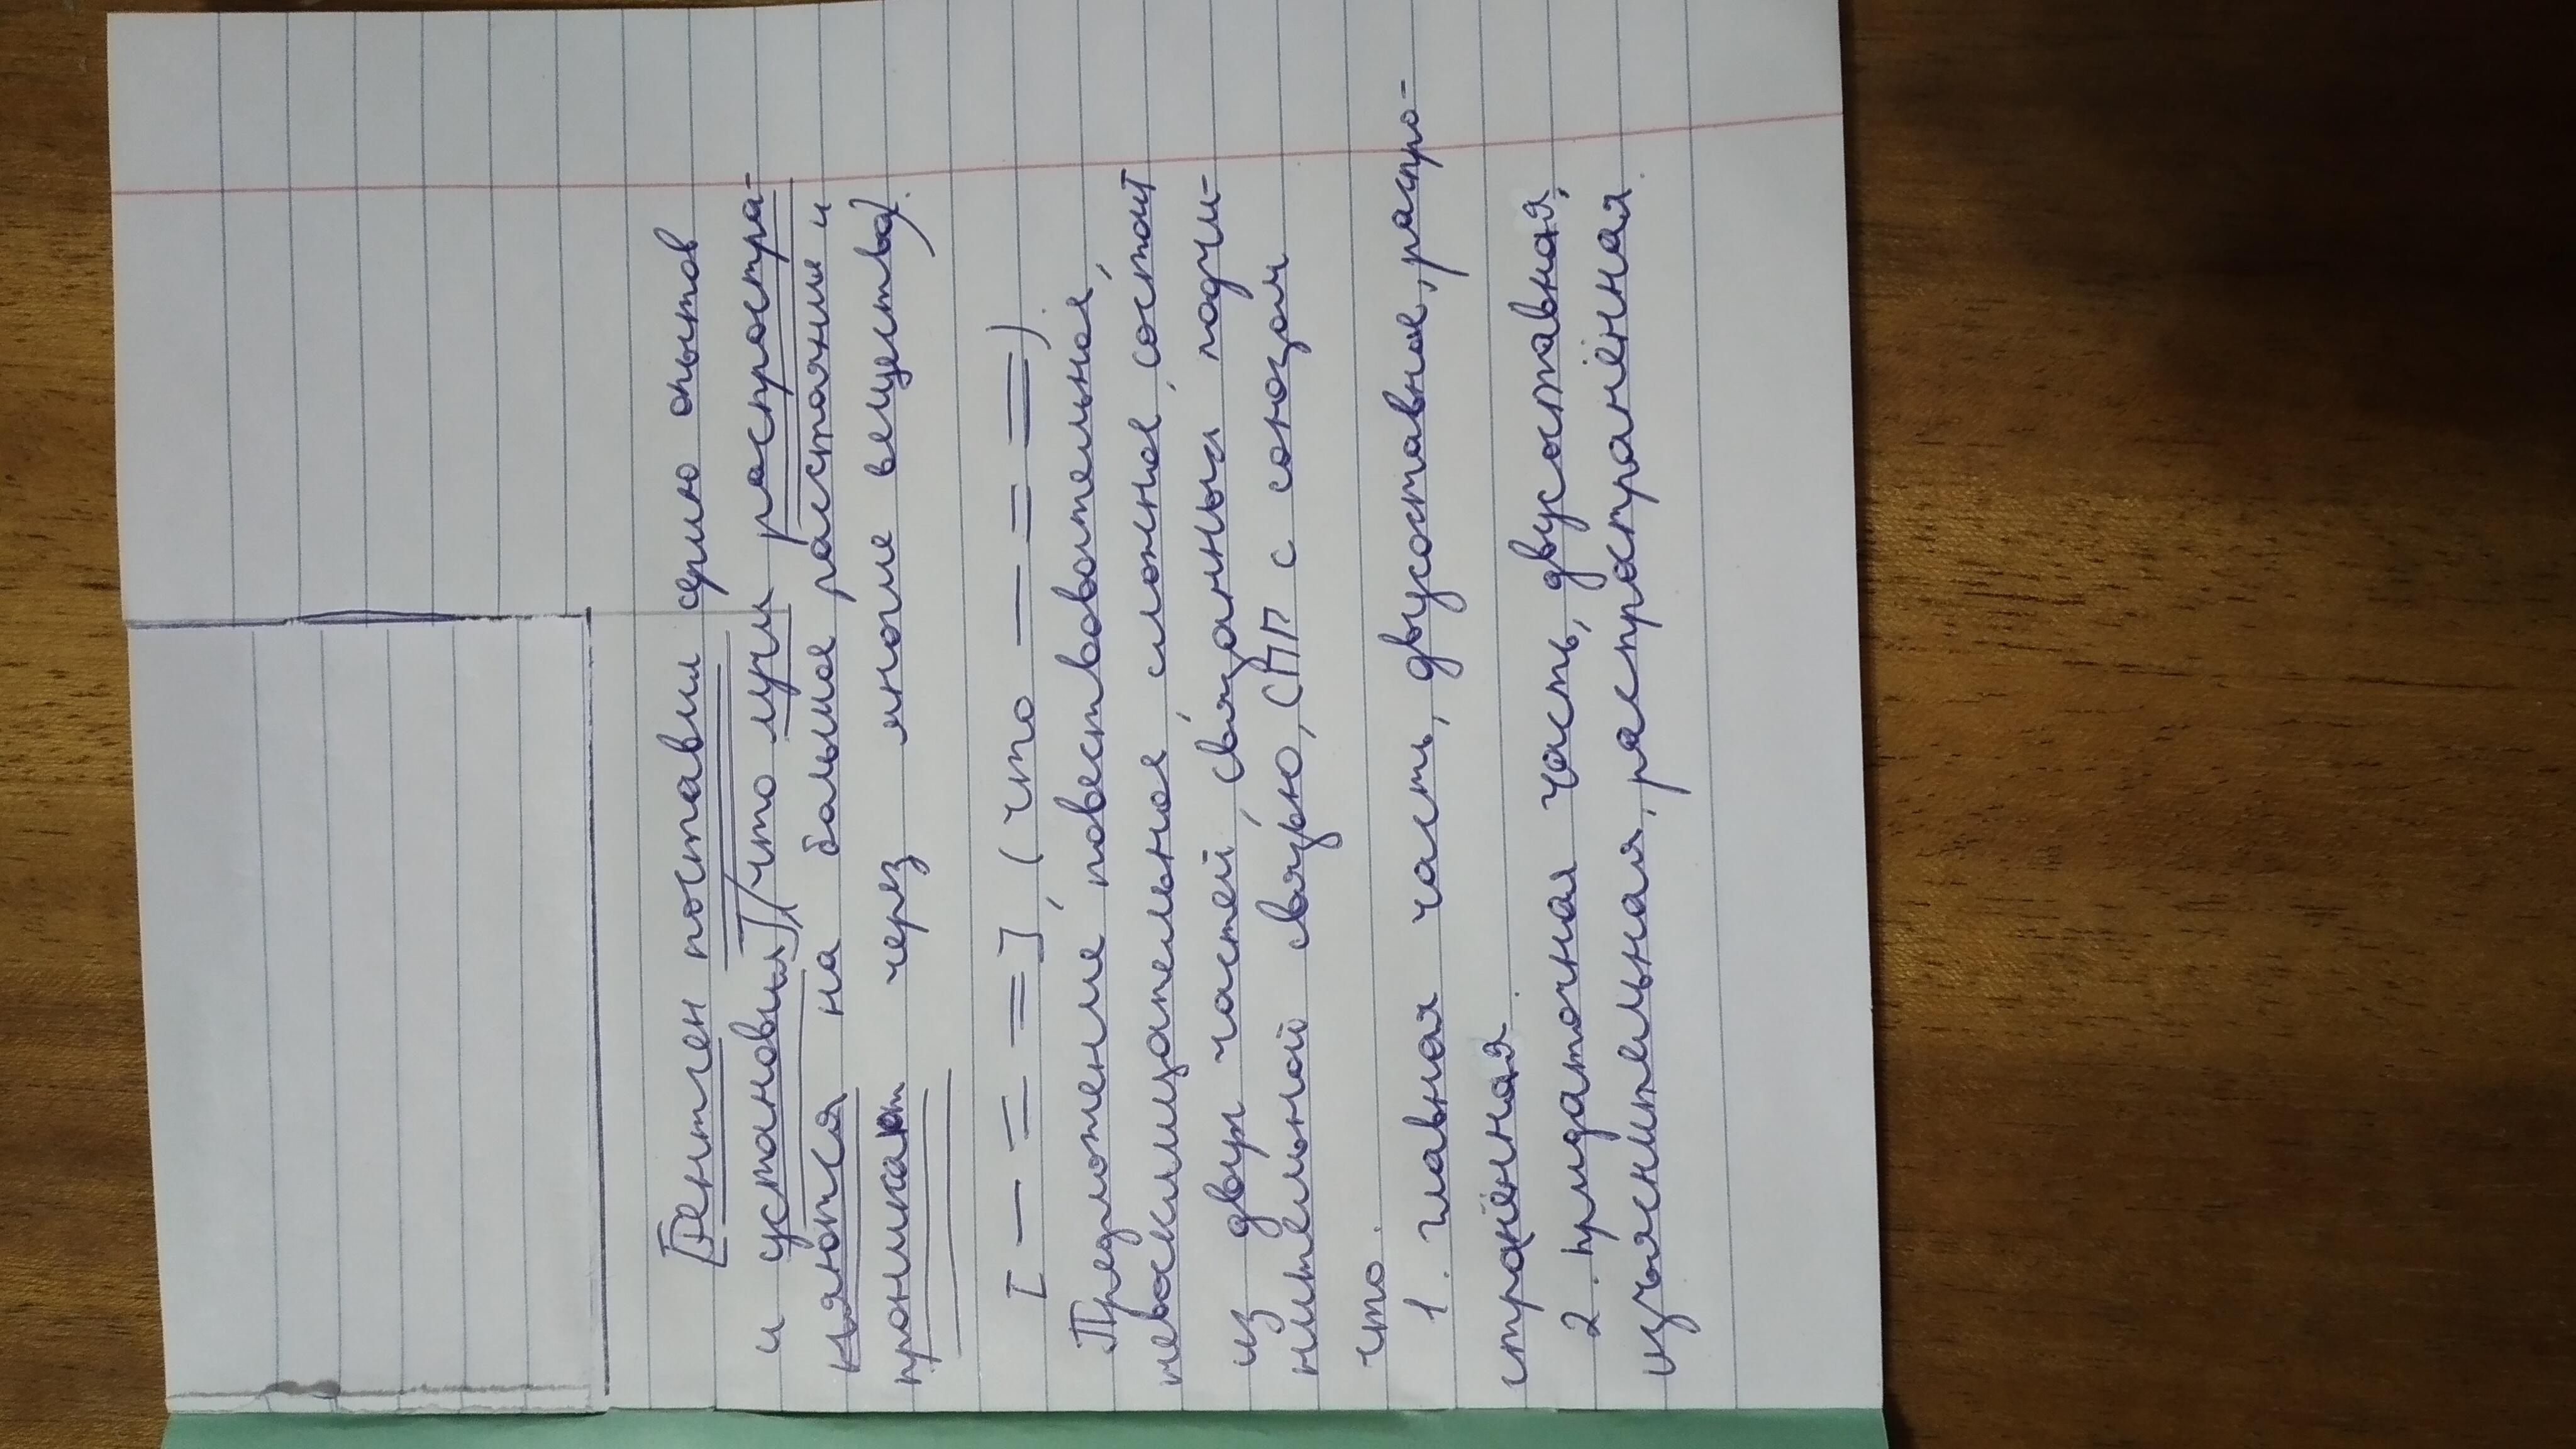 [Рентген поставил серию опытов
и установил], (что лучи распростра-
няются на большое расстояние и
проникают через многие вещества).
[— = =], (что — = =).
Предложение, повествовательное,
невосклицательное, сложное, состоит
из двух частей, связанных подчи-
нительной связью, СПП с союзом
что.
1. главная часть, двусоставное, распро-
странённая.
2. придаточная часть, двусоставная,
изъяснительная, распространённая.